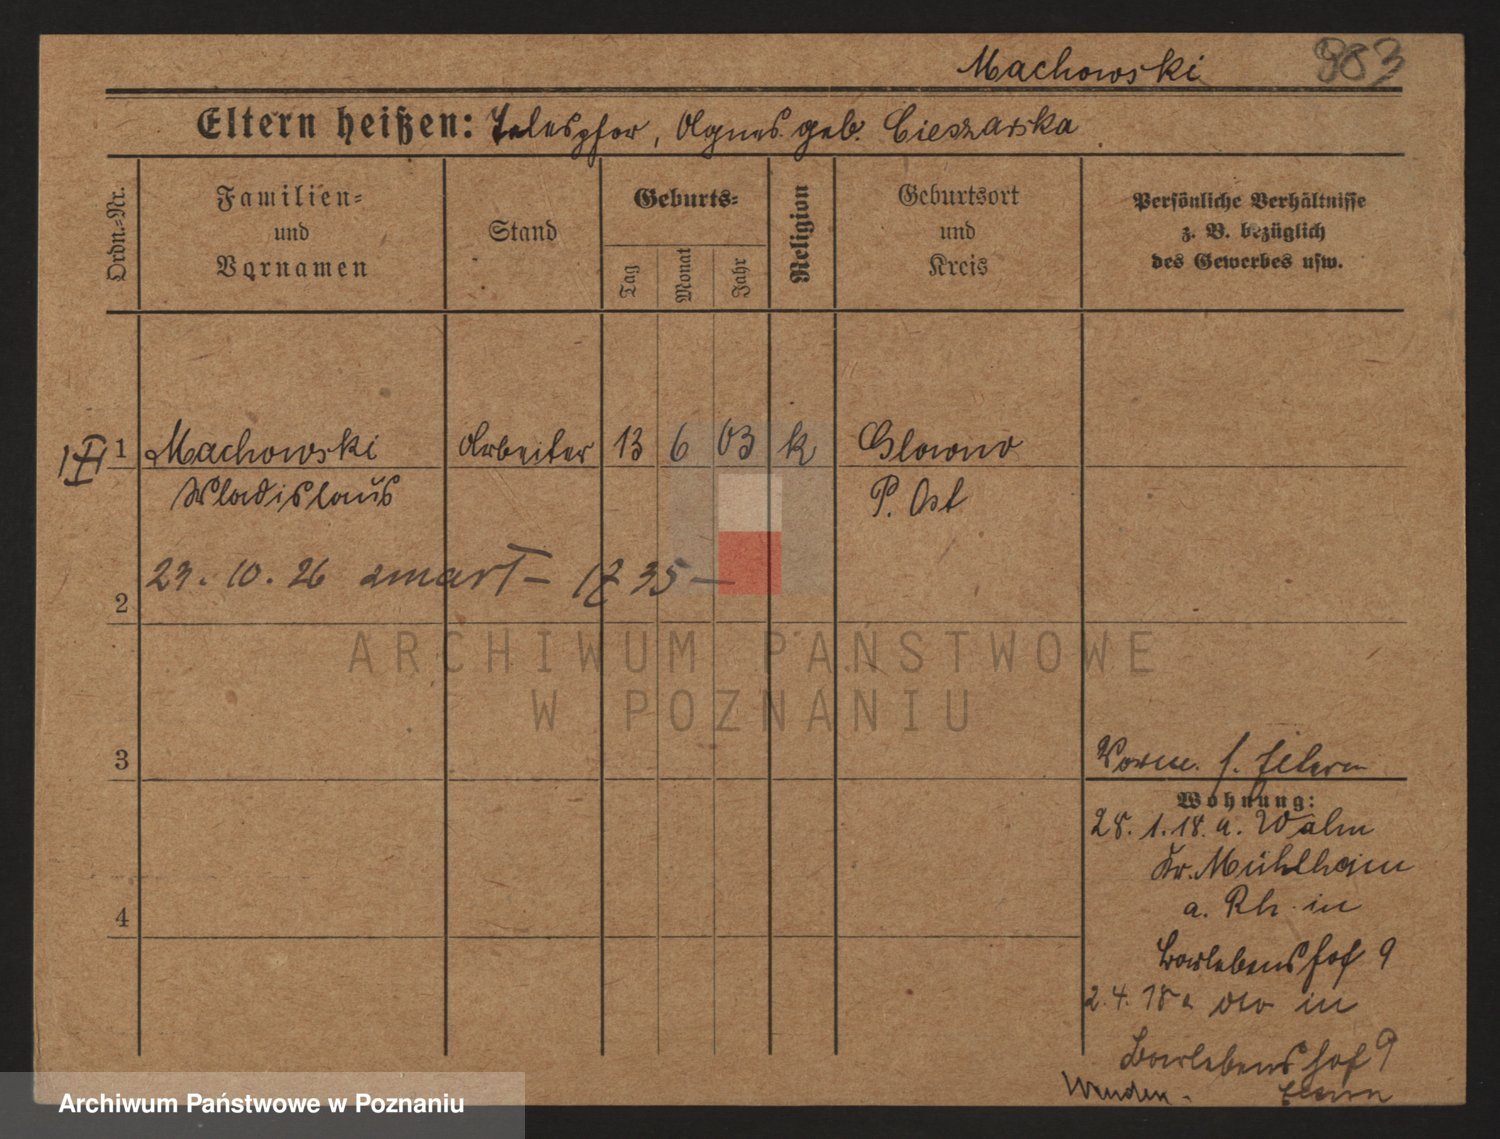 Machowski 983
Eltern heißen: Telesphor, Agnes geb. Cieszarska
Ordn.=Nr.
Familien=
und
Vornamen
Stand
Geburts=
Tag
Monat
Jahr
Religion
Geburtsort
und
Kreis
Persönliche Verhältnisse
z. B. bezüglich
des Gewerbes usw.
1 Machowski Arbeiter 13 6 03 k Glowno
Wladislaus P. Ost
23. 10. 26 zmarł 35
2
ARCHIWUM PAŃSTWOWE
W POZNANIU
3
f. Eltern
Wohnung:
28. 1. 18. a.
Kr. Mühlheim
a. Rh. in
Barlebenshof 9
2. 4. 18 a in
Barlebenshof 9
Wenden.
4
Archiwum Państwowe w Poznaniu